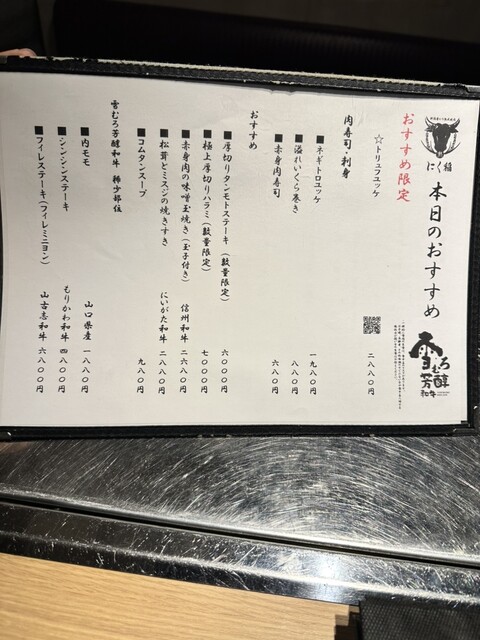 にく稲
本日のおすすめ
雪むろ
芳醇
和牛
おすすめ限定
☆トリュフユッケ 二八八〇円
肉寿司・刺身
■ネギトロユッケ 一九八〇円
■溢れいくら巻き 八八〇円
■赤身肉寿司 六八〇円
おすすめ
■厚切りタンモトステーキ (数量限定) 六〇〇〇円
■極上厚切りハラミ (数量限定) 七〇〇〇円
■赤身肉の味噌玉焼き (玉子付き) 信州和牛 二六八〇円
■松茸とミスジの焼きすき にいがた和牛 二八八〇円
■コムタンスープ 九八〇円
雪むろ芳醇和牛 稀少部位
■内モモ 山口県産 一八八〇円
■シンシンステーキ もりかわ和牛 四八〇〇円
■フィレステーキ (フィレミニヨン) 山古志和牛 六八〇〇円